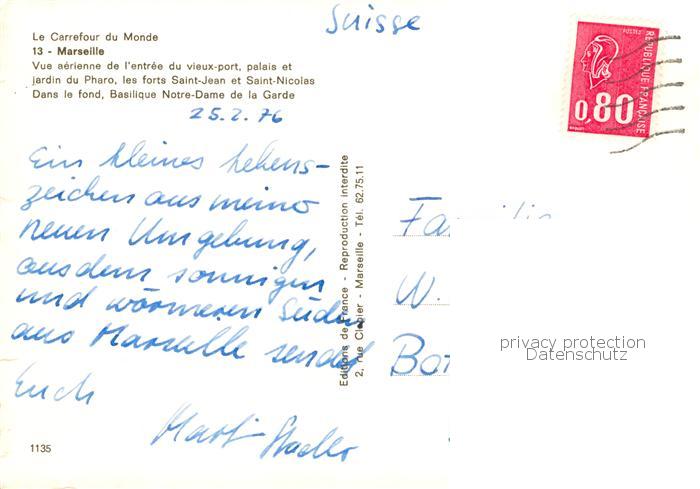 Suisse
Le Carrefour du Monde
13 - Marseille
Vue aérienne de l'entrée du vieux-port, palais et
jardin du Pharo, les forts Saint-Jean et Saint-Nicolas
Dans le fond, Basilique Notre-Dame de la Garde
25.2.76
Ein kleines Lebens-
zeichen aus meine
neuen Umgebung,
aus dem sonnigen
und wärmeren Süden
aus Marseille sendet
Euch
1135
Editions de France - Reproduction interdite
2, rue Clapier - Marseille - Tél. 62.75.11
POSTES
REPUBLIQUE FRANÇAISE
0,80
Familie
W.
privacy protection
Datenschutz